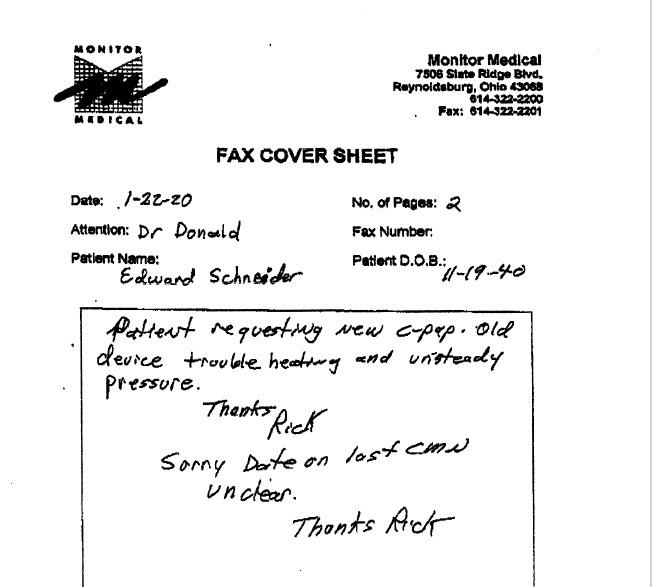 MONITOR
MEDICAL
Monitor Medical
7506 Slate Ridge Blvd.
Reynoldsburg, Ohio 43068
614-322-2200
Fax: 614-322-2201
FAX COVER SHEET
Date: 1-22-20
No. of Pages: 2
Attention: Dr Donald
Fax Number:
Patient Name: Edward Schneider
Patient D.O.B.: 11-19-40
Patient requesting new c-pap. Old
device trouble heating and unsteady
pressure.
Thanks
Rick
Sorry Date on last CMN
unclear.
Thanks Rick